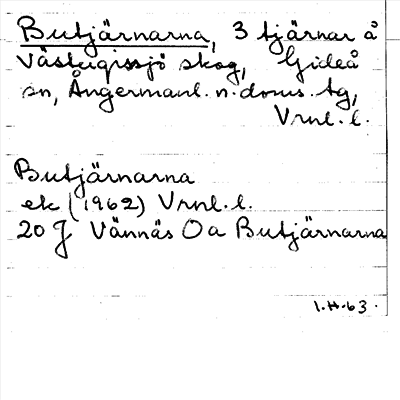 Butjärnarna, 3 tjärnar å
Västergissjö skog, Gideå
sn, Ångermanl. n. doms. tg,
Vrnl. l.
Butjärnarna
ek (1962) Vrnl. l.
20 J Vännäs Oa Butjärnarna
I.H-63.